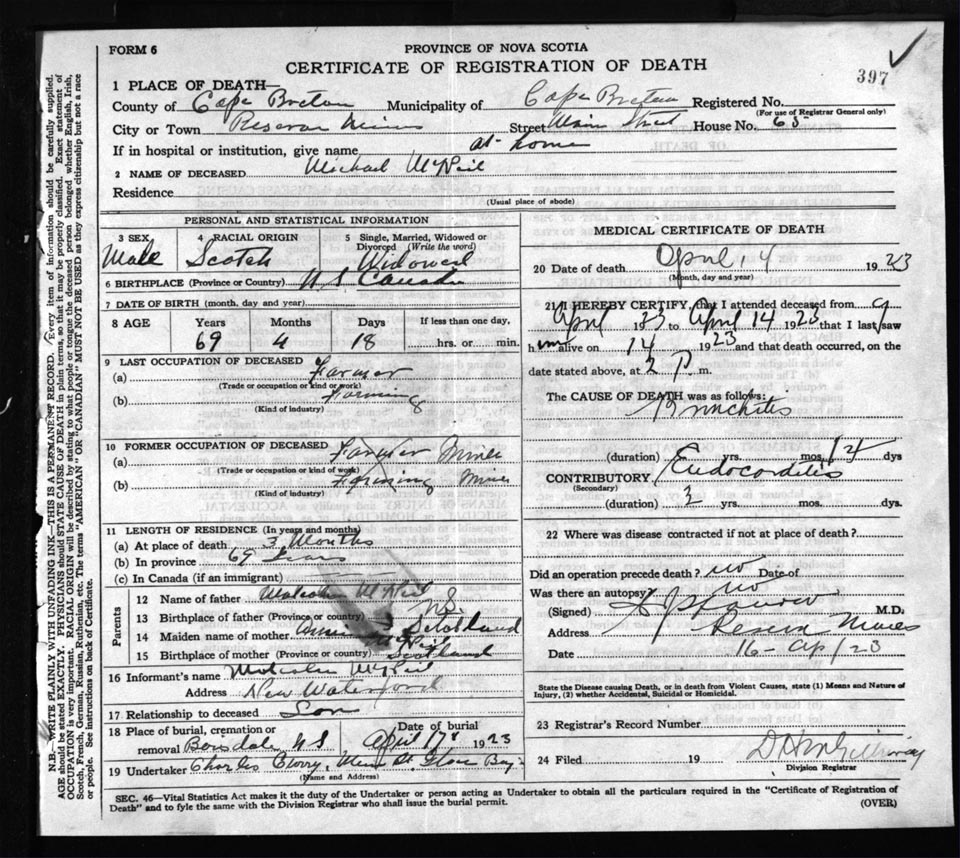 FORM 6
PROVINCE OF NOVA SCOTIA
CERTIFICATE OF REGISTRATION OF DEATH
397
1 PLACE OF DEATH—
County of Cape Breton Municipality of Cape Breton Registered No.
(For use of Registrar General only)
City or Town Reserve Mines Street Main Street House No. 65
If in hospital or institution, give name at home
2 NAME OF DECEASED Michael McNeil
Residence
(Usual place of abode)
PERSONAL AND STATISTICAL INFORMATION
3 SEX Male
4 RACIAL ORIGIN Scotch
5 Single, Married, Widowed or Divorced (Write the word) Widowed
6 BIRTHPLACE (Province or Country) N.S. Canada
7 DATE OF BIRTH (month, day and year)
8 AGE Years Months Days If less than one day,
69 4 18 hrs. or min.
9 LAST OCCUPATION OF DECEASED
(a) Farmer
(Trade or occupation or kind of work)
(b) Farming
(Kind of industry)
10 FORMER OCCUPATION OF DECEASED
(a) Farmer Miner
(Trade or occupation or kind of work)
(b) Farming Mines
(Kind of industry)
11 LENGTH OF RESIDENCE (In years and months)
(a) At place of death 3 Months
(b) In province 69 Years
(c) In Canada (if an immigrant)
Parents
12 Name of father Malcolm McNeil
13 Birthplace of father (Province or country) N.S. Scotland
14 Maiden name of mother Annie
15 Birthplace of mother (Province or country) Scotland
16 Informant's name Malcolm McNeil
Address New Waterford
17 Relationship to deceased Son
18 Place of burial, cremation or removal Boisdale N S
Date of burial April 17 1923
19 Undertaker Charles Curry, Main St. Glace Bay
(Name and Address)
MEDICAL CERTIFICATE OF DEATH
20 Date of death April, 4 1923
(Month, day and year)
21 I HEREBY CERTIFY, that I attended deceased from 9
April 1923 to April 14 1923 that I last saw
him alive on 14 1923 and that death occurred, on the
date stated above, at 2 P m.
The CAUSE OF DEATH was as follows:
Bronchitis
(duration) yrs. mos. 14 dys
CONTRIBUTORY Endocarditis
(Secondary)
(duration) 3 yrs. mos. dys.
22 Where was disease contracted if not at place of death?
Did an operation precede death? no Date of
Was there an autopsy? no
(Signed) M.D.
Address Reserve Mines
Date 16- Ap/23
State the Disease causing Death, or in death from Violent Causes, state (1) Means and Nature of
Injury, (2) whether Accidental, Suicidal or Homicidal.
23 Registrar's Record Number
24 Filed 19 D H McGillivray
Division Registrar
SEC. 46—Vital Statistics Act makes it the duty of the Undertaker or person acting as Undertaker to obtain all the particulars required in the "Certificate of Registration of
Death" and to fyle the same with the Division Registrar who shall issue the burial permit.
(OVER)
N.B.—WRITE PLAINLY WITH UNFADING INK—THIS IS A PERMANENT RECORD. Every item of information should be carefully supplied.
AGE should be stated EXACTLY. PHYSICIANS should STATE CAUSE OF DEATH in plain terms, so that it may be properly classified. Exact statement of
OCCUPATION is very important. RACIAL ORIGIN will be described by stating to what people or tongue the deceased person belonged whether English, Irish,
Scotch, French, German, Russian, Ruthenian, etc. The terms "AMERICAN" OR "CANADIAN" MUST NOT BE USED as they express citizenship but not a race
or people. See instructions on back of Certificate.